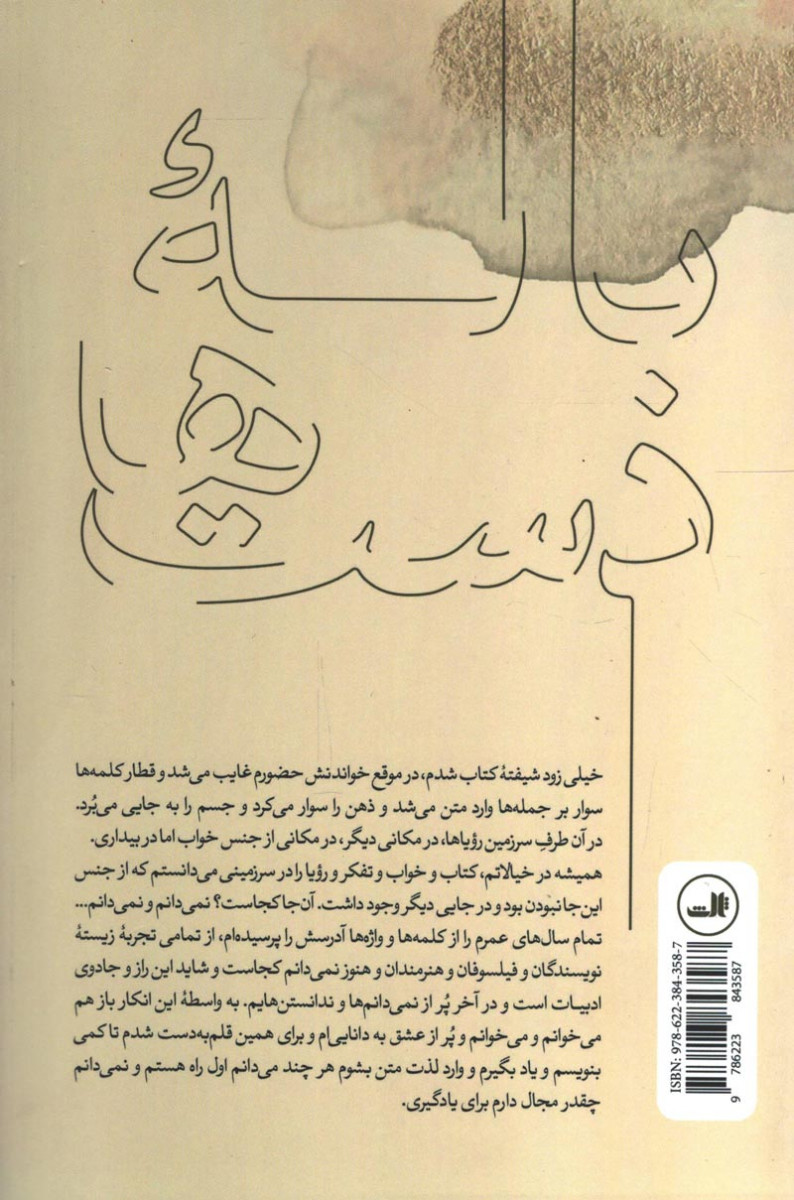 خیلی زود شیفتهٔ کتاب شدم، در موقع خواندنش حضورم غایب می‌شد و قطار کلمه‌ها
سوار بر جمله‌ها وارد متن می‌شد و ذهن را سوار می‌کرد و جسم را به جایی می‌بُرد.
در آن طرفِ سرزمین رؤیاها، در مکانی دیگر، در مکانی از جنس خواب اما در بیداری.
همیشه در خیالاتم، کتاب و خواب و تفکر و رؤیا را در سرزمینی می‌دانستم که از جنس
این‌جا نبودن بود و در جایی دیگر وجود داشت. آن‌جا کجاست؟ نمی‌دانم و نمی‌دانم...
تمام سال‌های عمرم را از کلمه‌ها و واژه‌ها آدرسش را پرسیده‌ام، از تمامی تجربهٔ زیستهٔ
نویسندگان و فیلسوفان و هنرمندان و هنوز نمی‌دانم کجاست و شاید این راز و جادوی
ادبیات است و در آخر پُر از نمی‌دانم‌ها و ندانستن‌هایم. به واسطهٔ این انکار باز هم
می‌خوانم و می‌خوانم و پُر از عشق به دانایی‌ام و برای همین قلم‌به‌دست شدم تا کمی
بنویسم و یاد بگیرم و وارد لذت متن بشوم هر چند می‌دانم اول راه هستم و نمی‌دانم
چقدر مجال دارم برای یادگیری.
ثالث
ISBN: 978-622-384-358-7
9 786223 843587